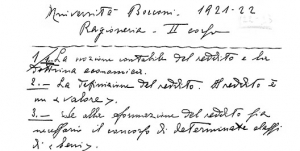 Università Bocconi. 1921-22
Ragioneria - II corso
1.— La nozione contabile del reddito e la
dottrina economica.
2.— La definizione del reddito. Il reddito è
un «valore».
3.— Se alla formazione del reddito sia
necessario il concorso di determinate classi
di «beni».